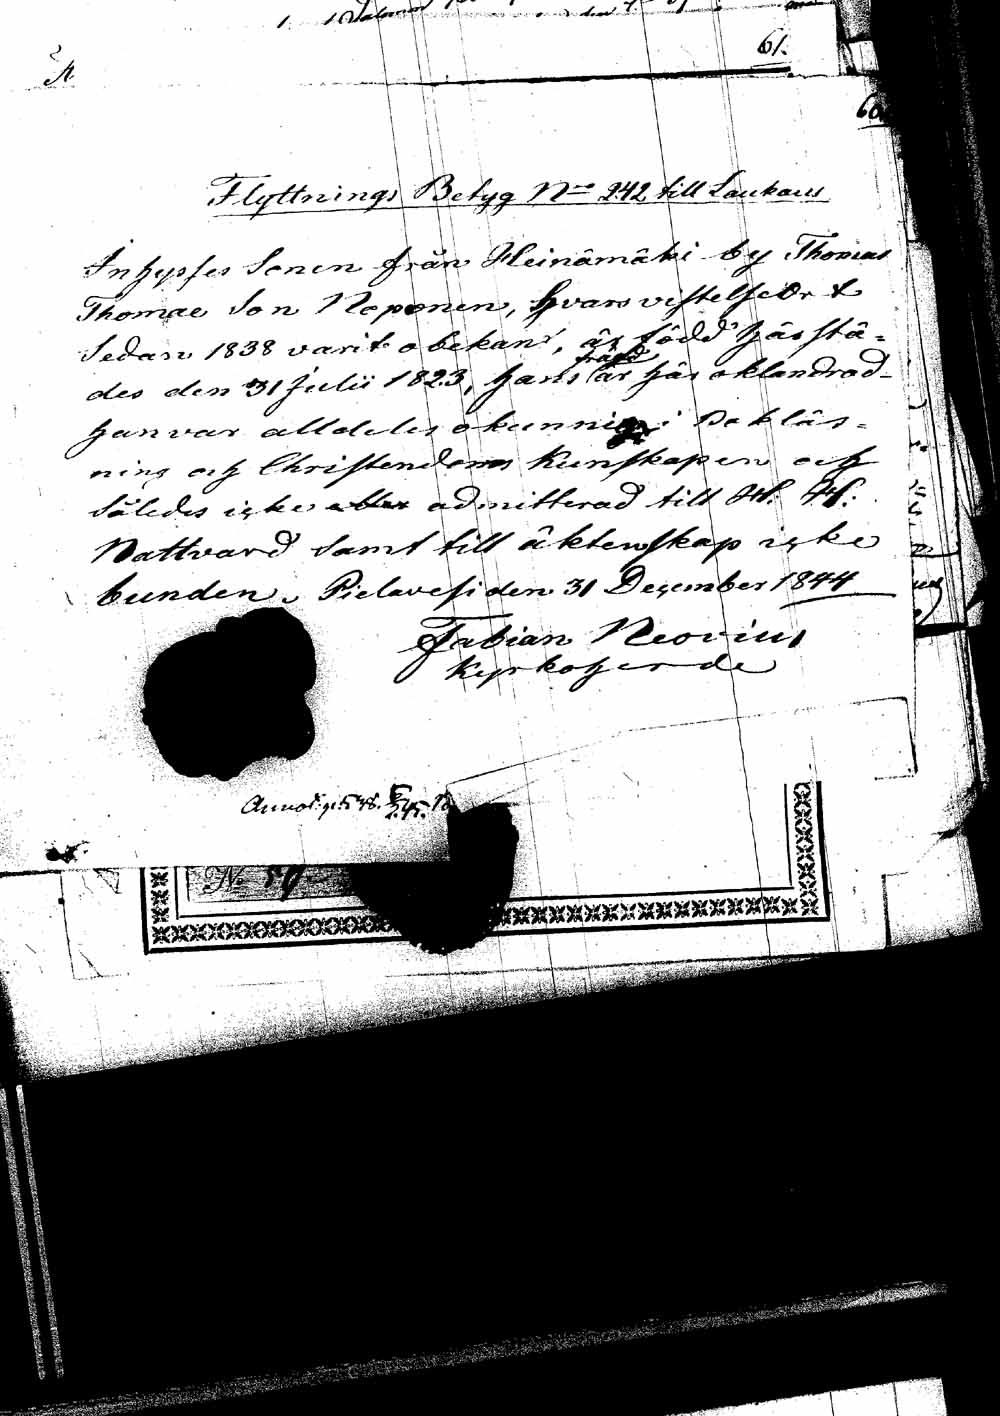 61.
60.
Flyttnings Betyg No 242 till Laukaus
Inhyses Sonen från Heinämäki by Thomas
Thomae Son Noponen, hvars vistelseOrt
Sedan 1838 varit obekant, är född härstä-
des den 31 Julii 1823, hans frägd är här oklandrad-
han var alldeles okunnig i Bokläs-
ning och Christendoms Kunskapen och
således icke admitterad till H. H.
Nattvard samt till äktenskap icke
bunden. Pielavesi den 31 December 1844
Fabian Neovius
Kyrkoherde
No 50